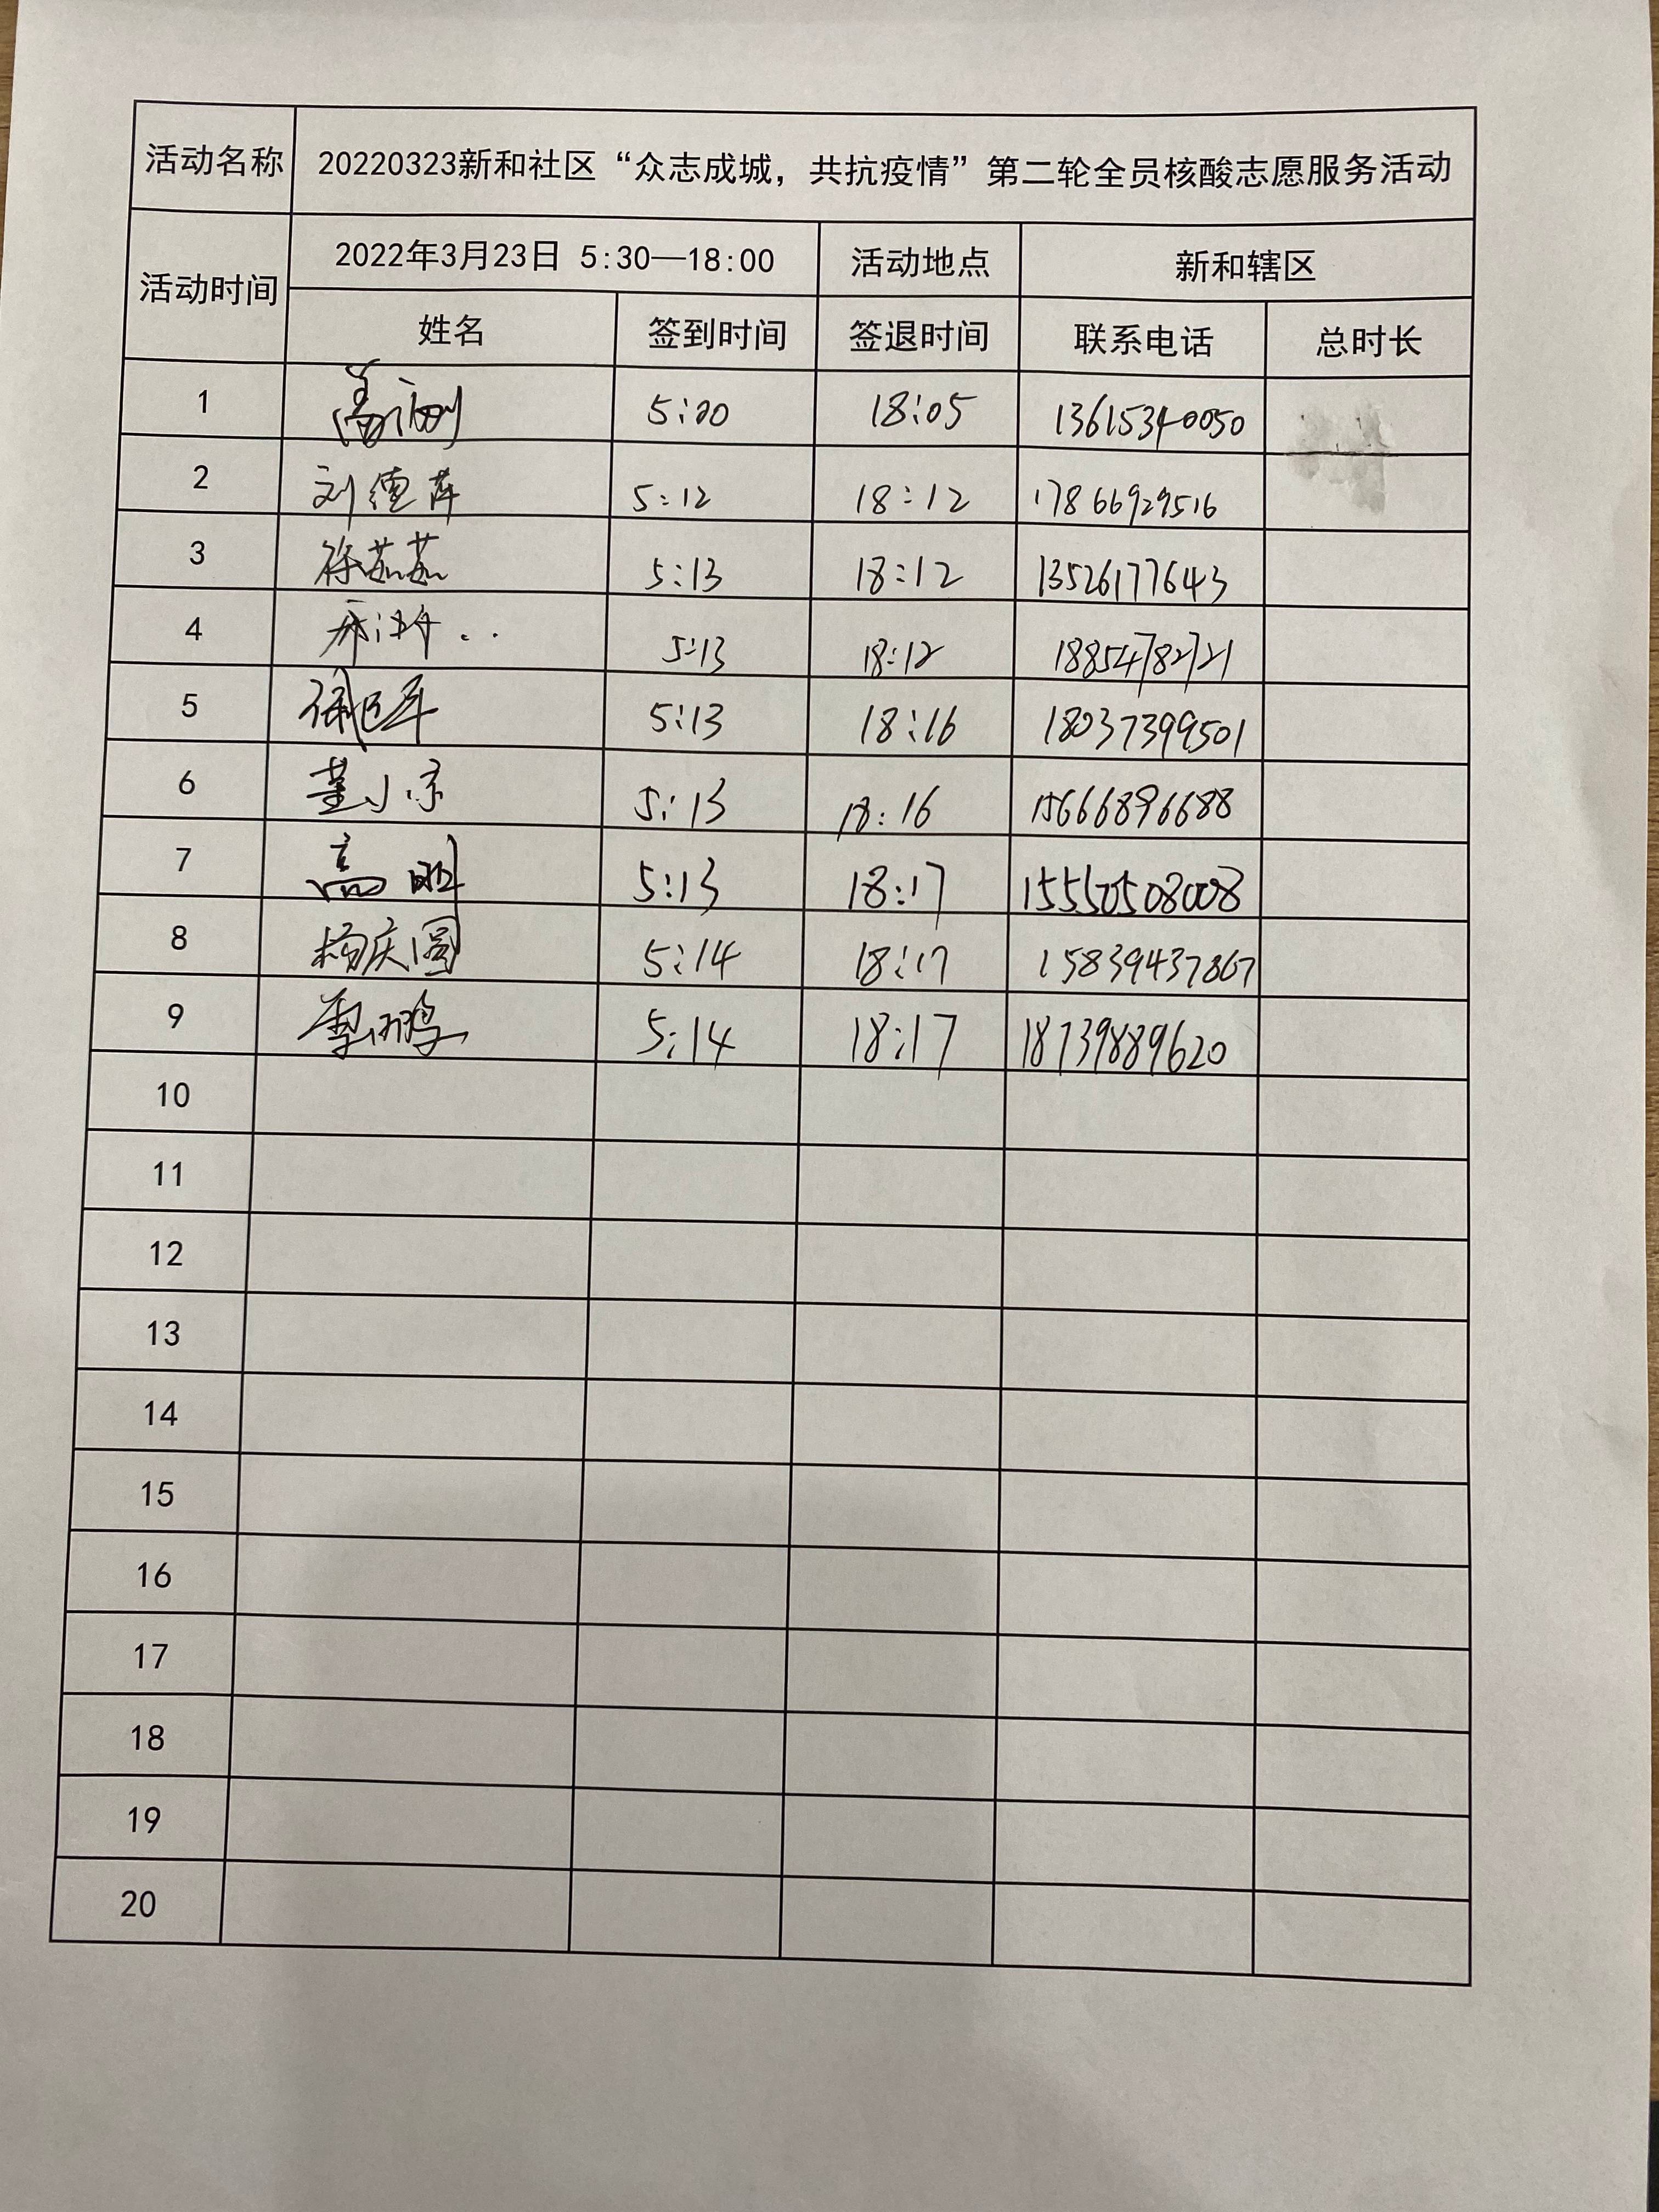 活动名称 20220323新和社区“众志成城，共抗疫情”第二轮全员核酸志愿服务活动
活动时间 2022年3月23日 5:30—18:00 活动地点 新和辖区
姓名 签到时间 签退时间 联系电话 总时长
1 18:05 13615340050
2 刘德萍 5:12 18:12 17866929516
3 徐茹茹 5:13 18:12 13526177643
4 5:13 18:12 18854782721
5 5:13 18:16 18037399501
6 董小京 5:13 18:16 15666896688
7 高 5:13 18:17 15550508008
8 杨庆圆 5:14 18:17 15839437867
9 李鹏 5:14 18:17 18739889620
10
11
12
13
14
15
16
17
18
19
20